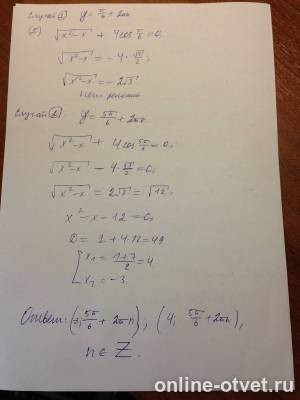 Случай ① y = π/6 + 2πn
(I) √(x²-x) + 4cos π/6 = 0,
√(x²-x) = -4 · √3/2;
√(x²-x) = -2√3
Нет решений
Случай ②. y = 5π/6 + 2πn
√(x²-x) + 4cos 5π/6 = 0,
√(x²-x) - 4·√3/2 = 0,
√(x²-x) = 2√3 = √12,
x² - x - 12 = 0,
D = 1 + 4·12 = 49
[ x₁ = (1+7)/2 = 4
x₂ = -3.
Ответ: 5π/6 + 2πn), (4; 5π/6 + 2πn),
n ∈ Z.
online-otvet.ru